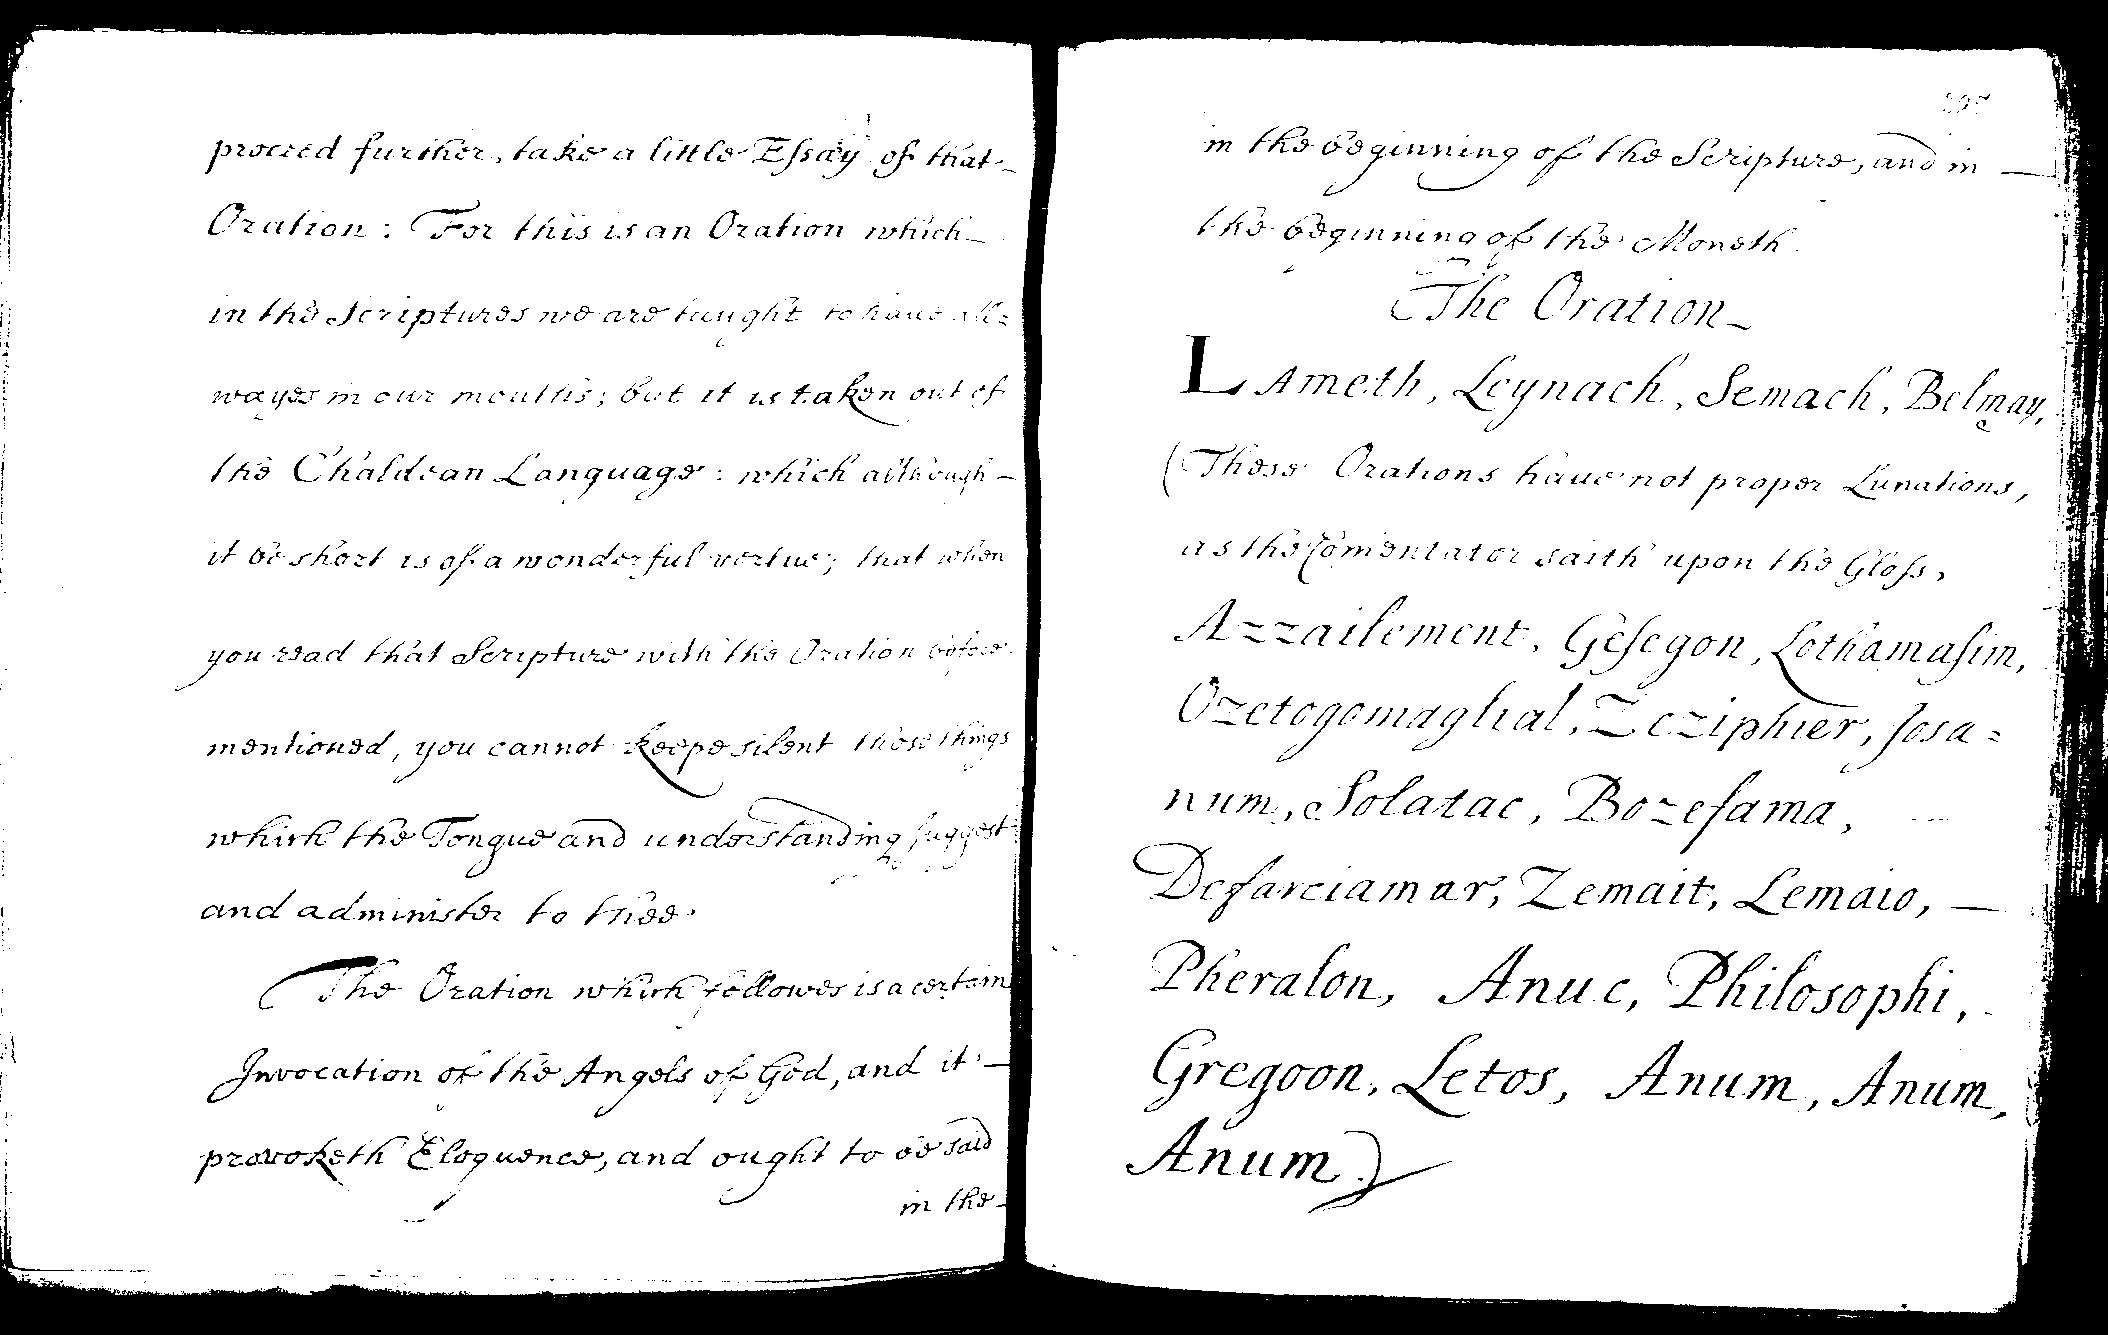 proceed further, take a little Essay of that-
Oration: For this is an Oration which-
in the Scriptures we are taught to haue all=
wayes in our mouths; but it is taken out of
the Chaldean Language: which although-
it be short is of a wonderful vertue; that when
you read that Scripture with the Oration before
mentioned, you cannot keepe silent those things
which the Tongue and understanding suggest
and administer to thee.
The Oration which followes is a certain
Invocation of the Angels of God, and it -
provoketh Eloquence, and ought to be said
in the-
in the beginning of the Scripture, and in -
the beginning of the Moneth.
The Oration-
LAmeth, Leynach, Semach, Belmay,
(These Orations haue not proper Lunations,
as the Comentator saith upon the Gloss,
Azzailement, Gesegon, Lothamasim,
Ozetogomaglial, Zeziphier, Josa=
num, Solatac, Bozefama,
Defarciamar, Zemait, Lemaio, -
Pheralon, Anuc, Philosophi,
Gregoon, Letos, Anum, Anum,
Anum.)